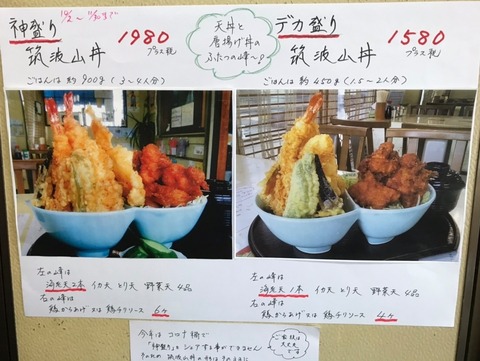 神盛り
筑波山丼
1980
プラス税
ごはんは約900g(3~4人分)
天丼と
唐揚げ丼の
ふたつの峰~♪
デカ盛り
筑波山丼
1580
プラス税
ごはんは約450g(1.5~2人分)
左の峰は
海老天2本 イカ天 とり天 野菜天 4品
右の峰は
鶏からあげ又は鶏チリソース 6ヶ
左の峰は
海老天1本 イカ天 とり天 野菜天 4品
右の峰は
鶏からあげ又は鶏チリソース 4ヶ
今年は コロナ禍で
「神盛り」をシェアする事ができません
ご飯
大丈夫
です